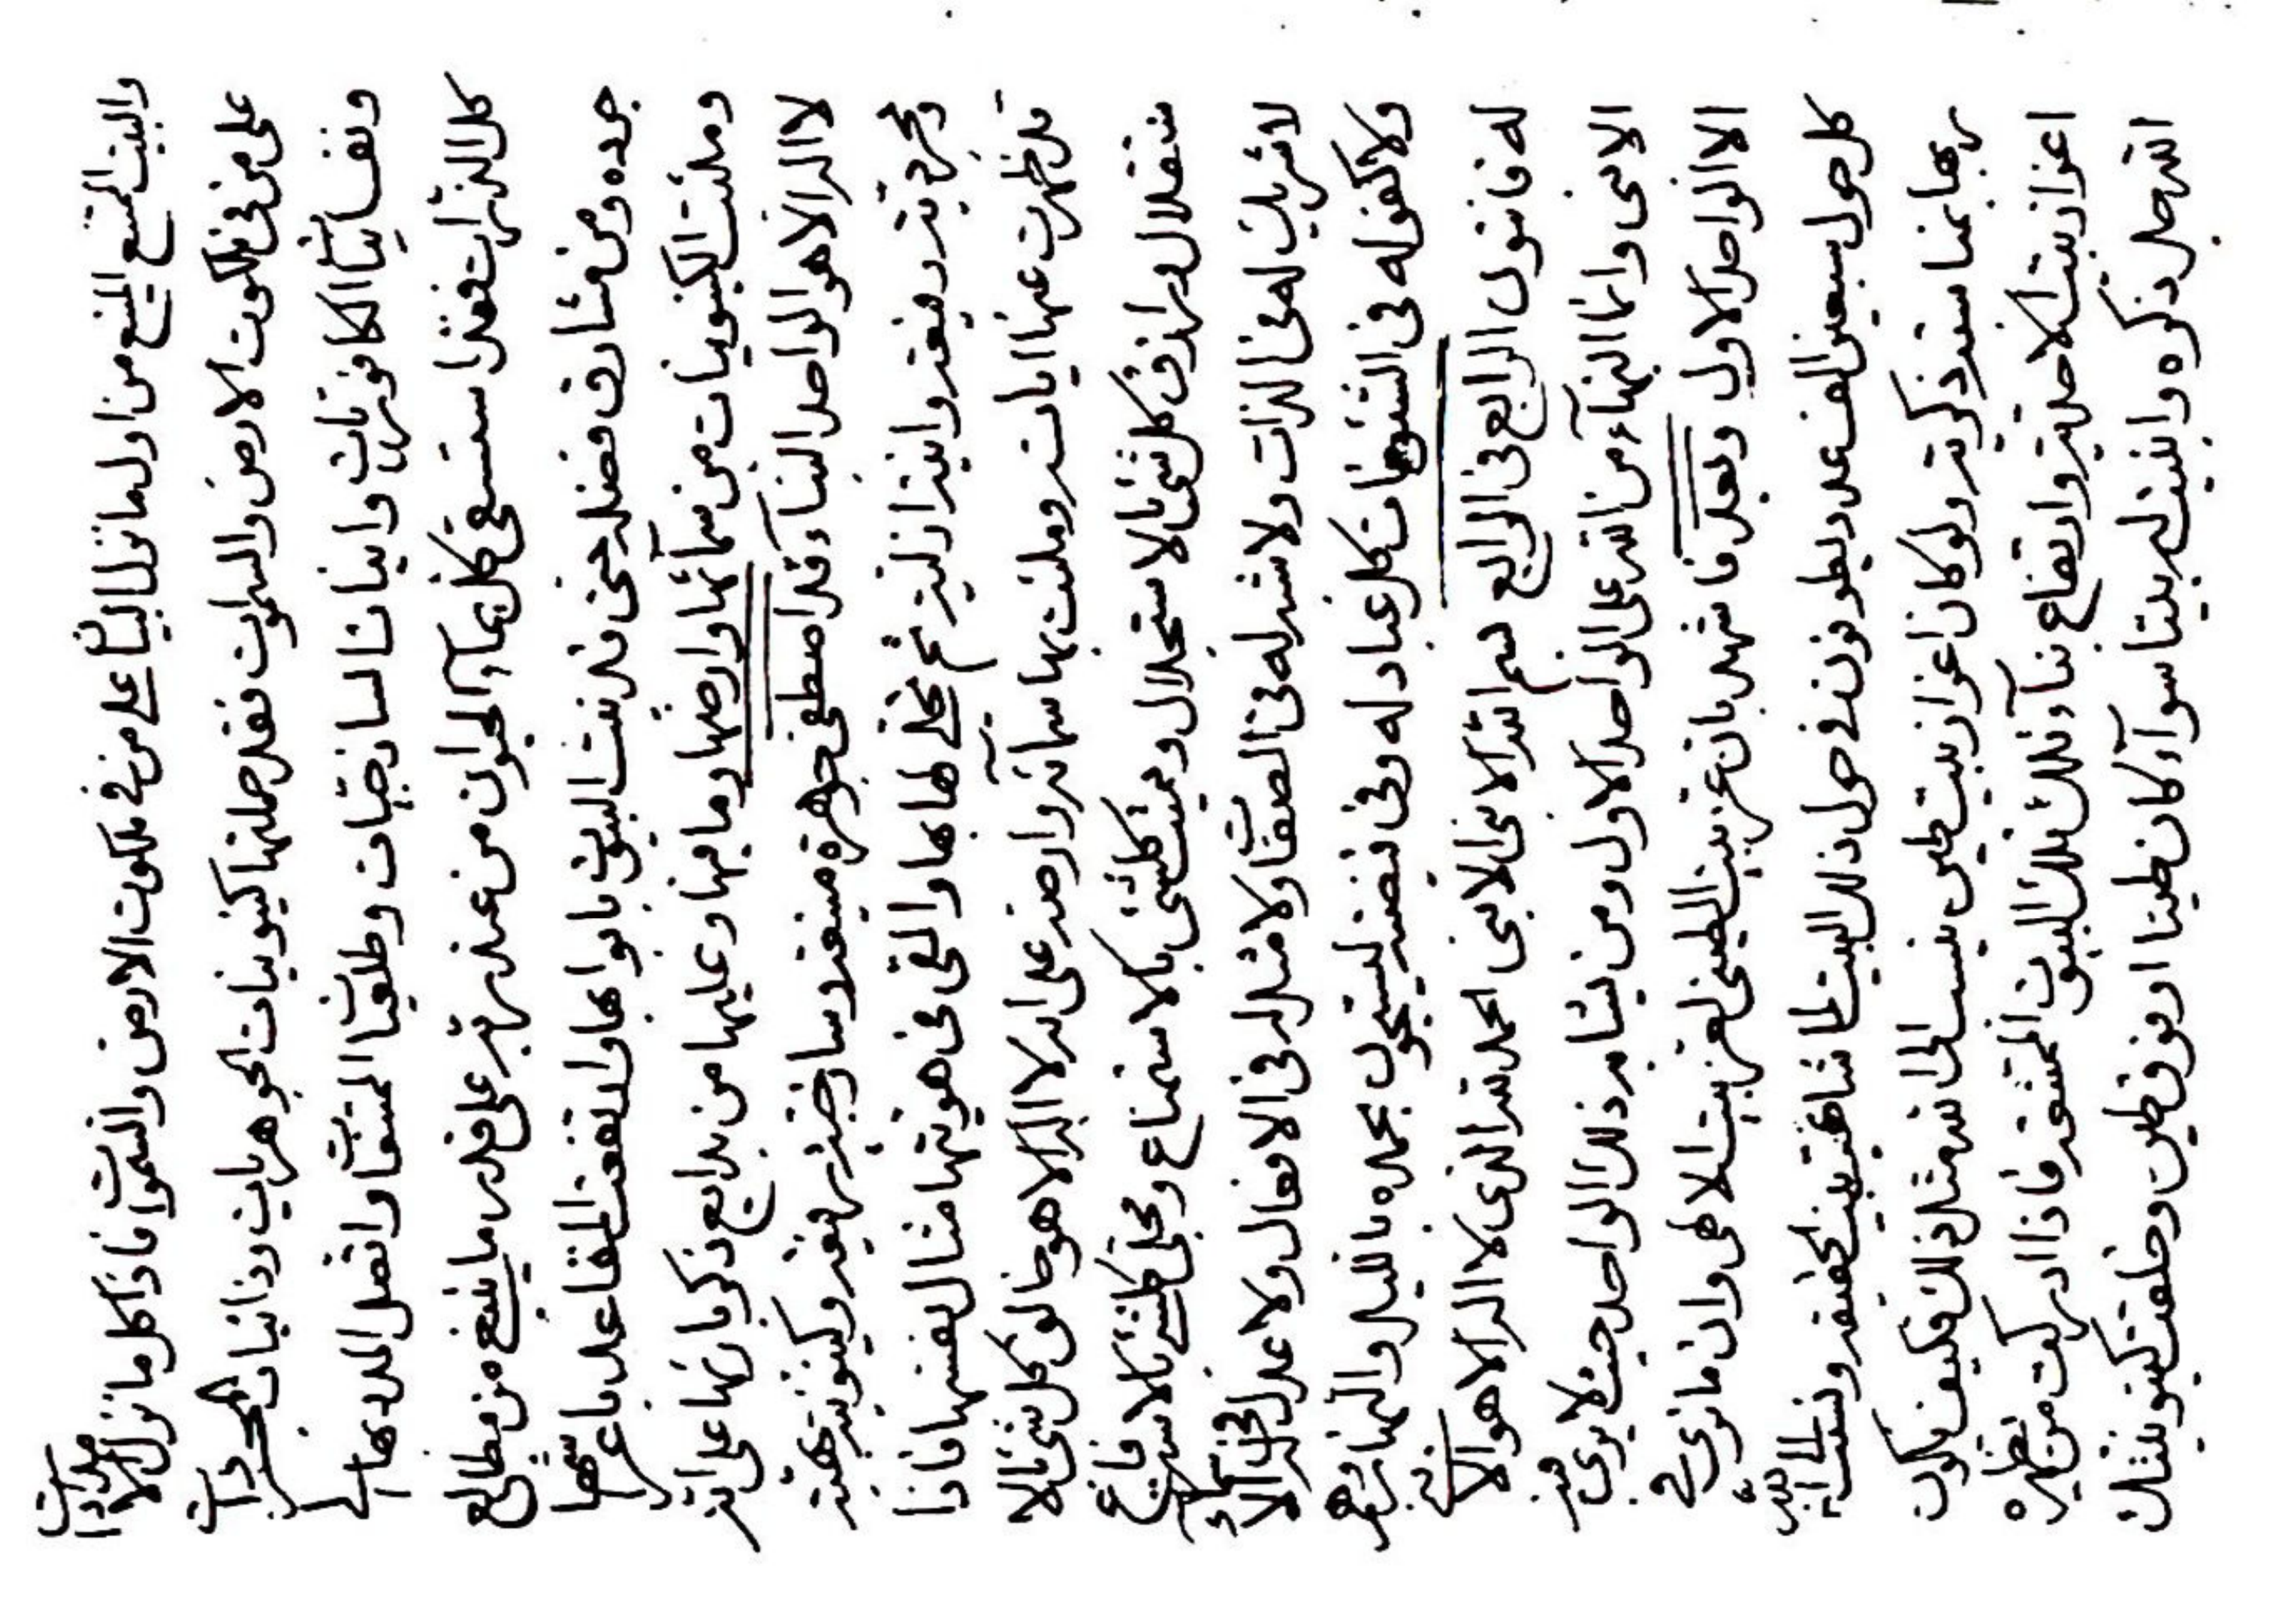 والبيت الممتنع المنيع من اول ما نزل البيا على من في ملكوت الارض والسموات فاذا كل ما نزل الا
على من فى ملكوت الارض والسموات فقد حملتها كينونيات الجوهريات وذاتيات المجردات
ونفسانيات الكافوريات وانيات الساذجيات وطلعات المتشعشعات واتصل المدد بها الى
كل الذرات فعند استسقى كل بماء الحيوان من عند ربه على قدر ما ينبغ من مطالع
جوده ومن مشارق فضله حتى قد بنت البيوت بابوابها وارتفعت المقاعد باعراشها
وملئت الكينونيات من سمائها وارضها وما فيها وعليها من بدايع ذكر بارئها على انه
لا اله الا هو الواحد البناء قد اصطفى جوهرة منيعة وساذجية رفيعة وكينونية بهية
ومجردية رفيعة وانية ازلية ثم تجلى لها بها والقى فى هويتها مثال نفسها فاذا
قد ظهرت عنها اياته وملئت بها سمائه وارضه على انه لا اله الا هو خالق كل شئ بالا
ستقلال ورازق كل شئ بالاستجلال ومميت كلشئ بالاستماع ومحيى كلشئ بالاسترفاع
لاشريك له فى الذات ولا شبه له فى الصفات ولا مثل له فى الافعال ولا عدل له
ولا كفو له فى الشئونات كل عباد له وفى قبضته ليسبحون بحمده بالليل والنهار وهم
له قانتون الرابع فى الرابع بسم الله الابهى الابهى الحمد لله الذى لا اله الا هو الا
الابهى وانما البهاء من الله على الواحد الاول ومن يشابه ذلك الواحد حيث لا يرى فيه
الا الواحد الاول وبعد فاشهد بان عز بيت الطينى لعز بيت الالهى وان ما ترى
كل حول سبعين الف عدد يطوفون فى حول ذلك البيت لما شاهدت بيت الحقيقة ونسبت اليه
ربها بما ستذكرته ولو كان اعزاز بيت طين ينسب الى الله مثل ذلك فكيف يكون
اعزاز بيت الاحدية وارتفاع بناء تلك البيوت المتقنة فاذا ادركت من يظهره
الله جل ذكره وابنيت له بيتا سواء كان طينا او فوق طين وخلقت كينونيتك